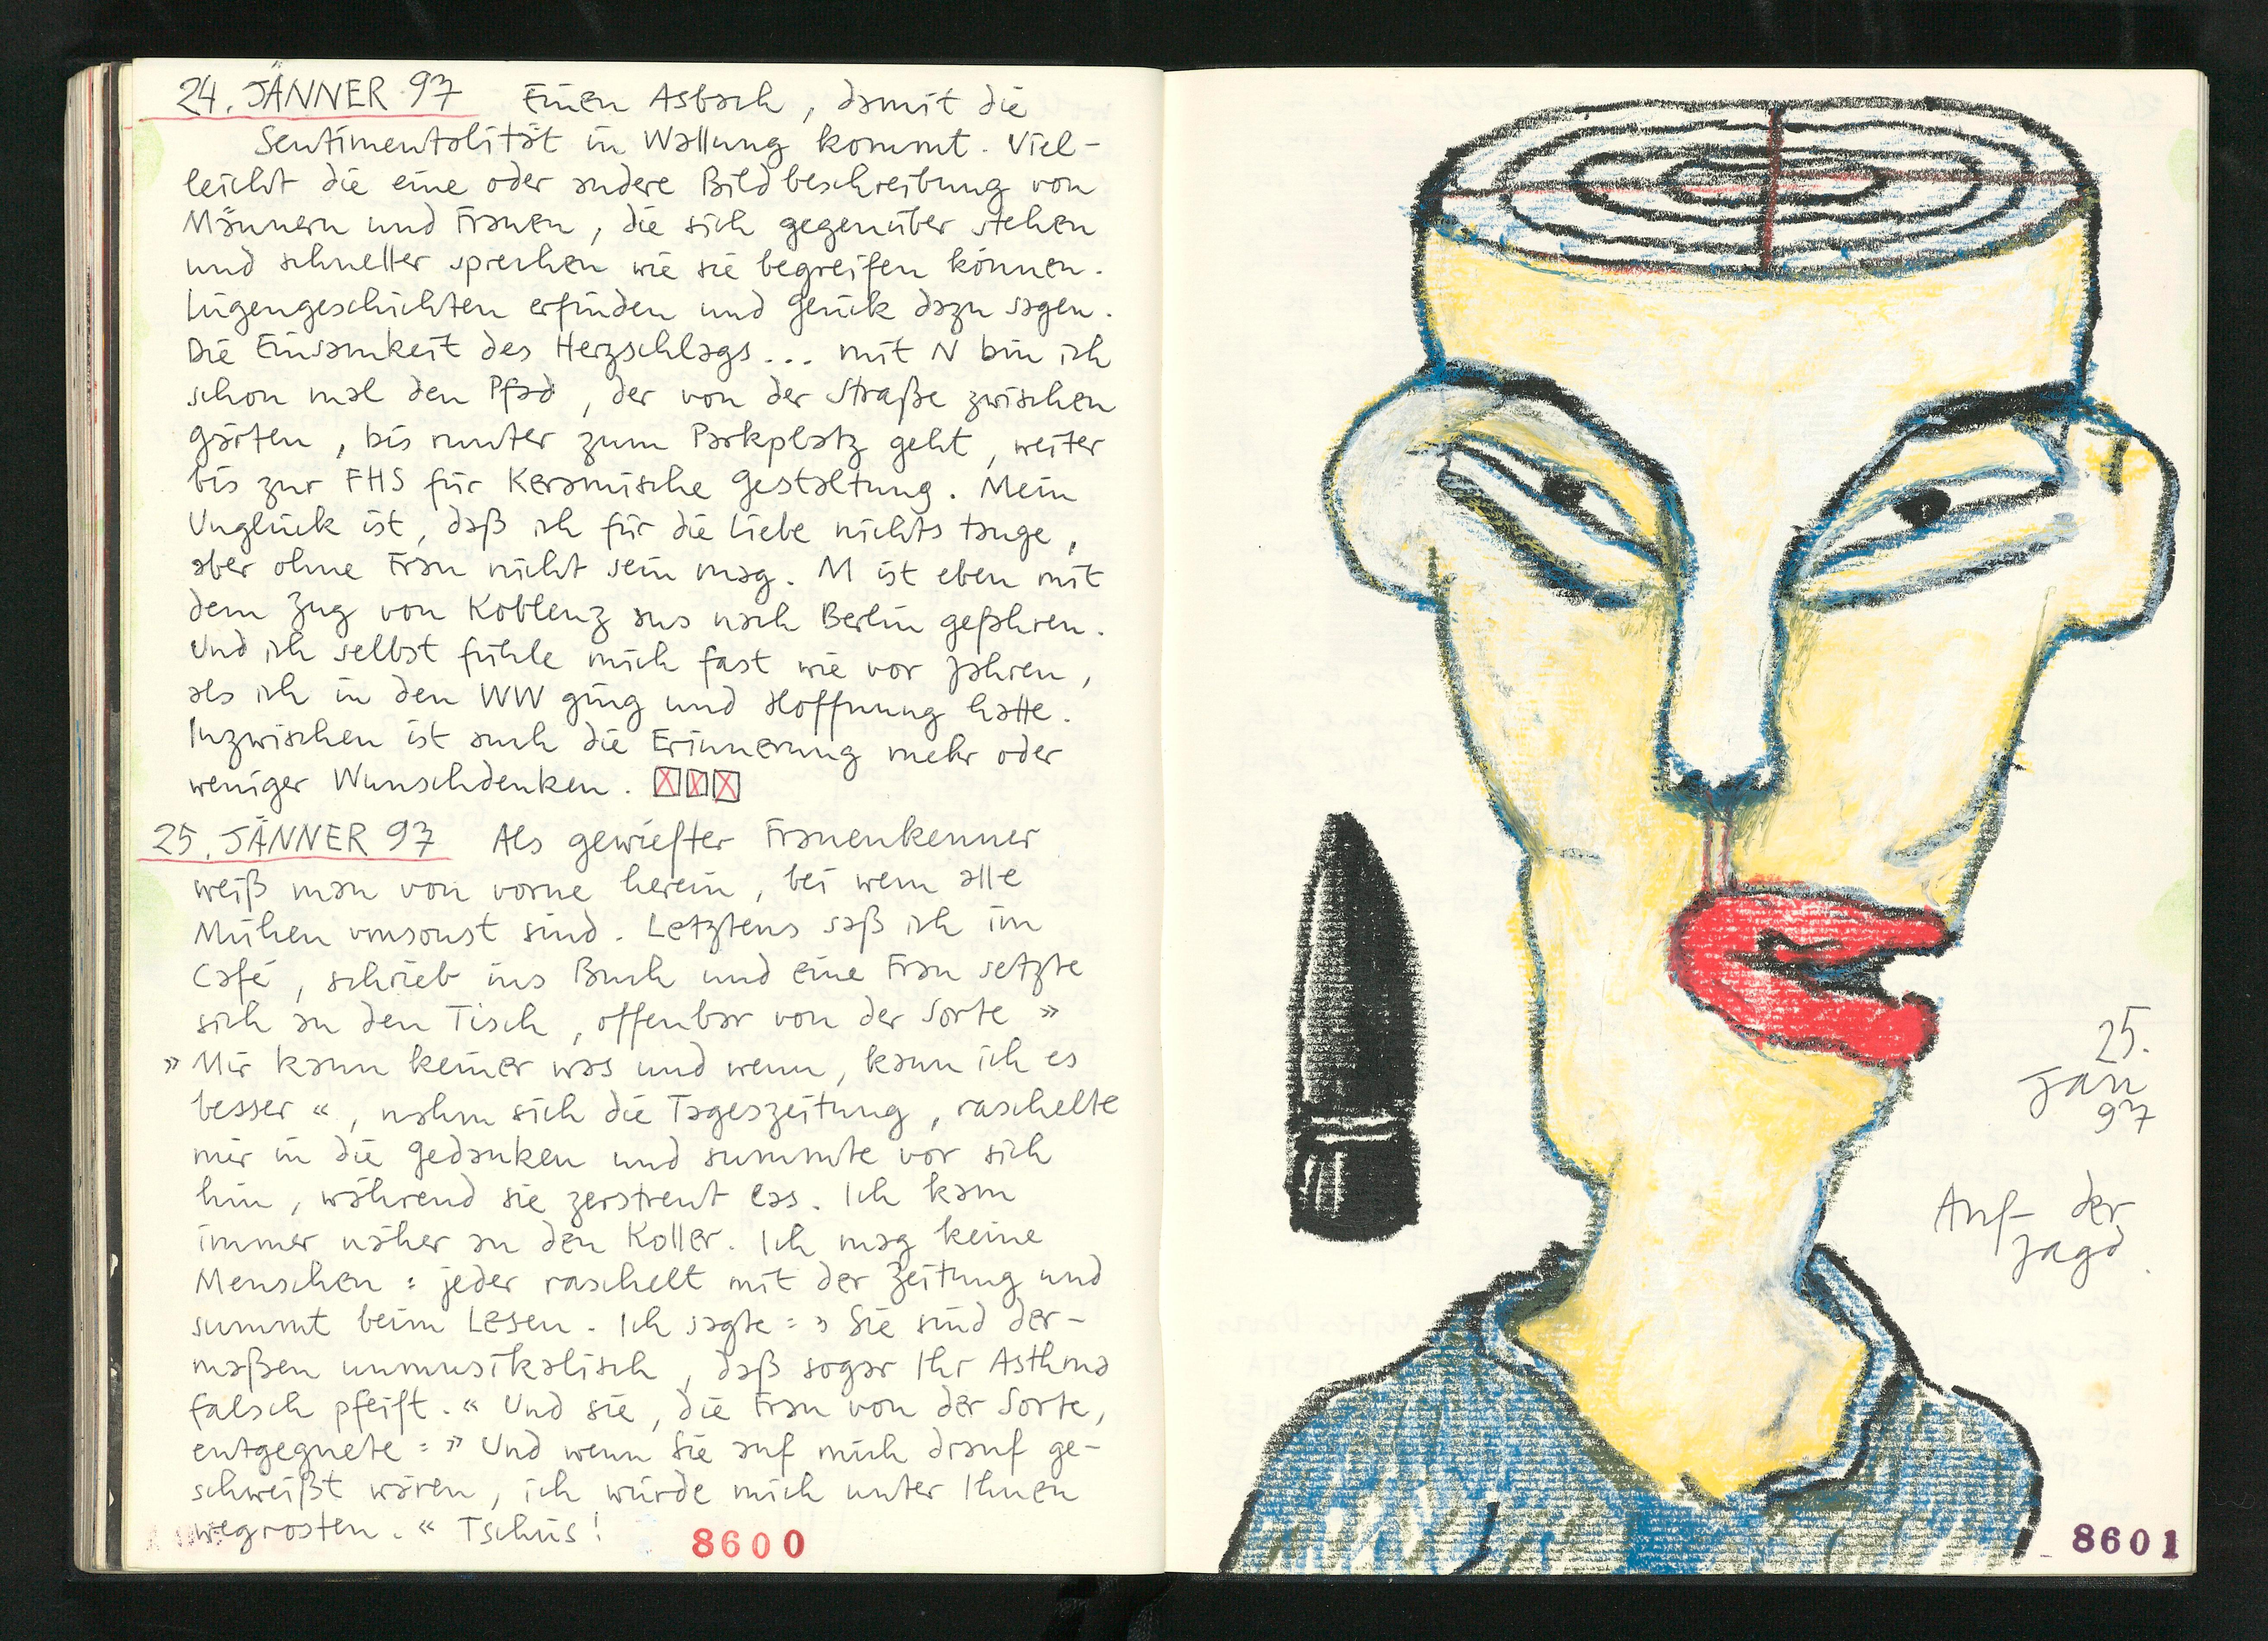 24. JÄNNER 97 Einen Asbach, damit die
Sentimentalität in Wallung kommt. Viel-
leicht die eine oder andere Bildbeschreibung von
Männern und Frauen, die sich gegenüber stehen
und schneller sprechen wie sie begreifen können.
Lügengeschichten erfinden und Glück dazu sagen.
Die Einsamkeit des Herzschlags... mit N bin ich
schon mal den Pfad, der von der Straße zwischen
Gärten, bis runter zum Parkplatz geht, weiter
bis zur FHS für Keramische Gestaltung. Mein
Unglück ist, daß ich für die Liebe nichts tauge,
aber ohne Frau nicht sein mag. M ist eben mit
dem Zug von Koblenz aus nach Berlin gefahren.
Und ich selbst fühle mich fast wie vor Jahren,
als ich in den WW ging und Hoffnung hatte.
Inzwischen ist auch die Erinnerung mehr oder
weniger Wunschdenken.
25. JÄNNER 97 Als gewiefter Frauenkenner
weiß man von vorne herein, bei wem alle
Mühen umsonst sind. Letztens saß ich im
Café, schrieb ins Buch und eine Frau setzte
sich an den Tisch, offenbar von der Sorte »
» Mir kann keiner was und wenn, kann ich es
besser «, nahm sich die Tageszeitung, raschelte
mir in die Gedanken und summte vor sich
hin, während sie zerstreut las. Ich kam
immer näher an den Koller. Ich mag keine
Menschen: jeder raschelt mit der Zeitung und
summt beim Lesen. Ich sagte: » Sie sind der-
maßen unmusikalisch, daß sogar Ihr Asthma
falsch pfeift. « Und sie, die Frau von der Sorte,
entgegnete: » Und wenn Sie auf mich drauf ge-
schweißt wären, ich würde mich unter Ihnen
wegrosten. « Tschüs!
8600
25.
Jan
97
Auf der
Jagd.
8601